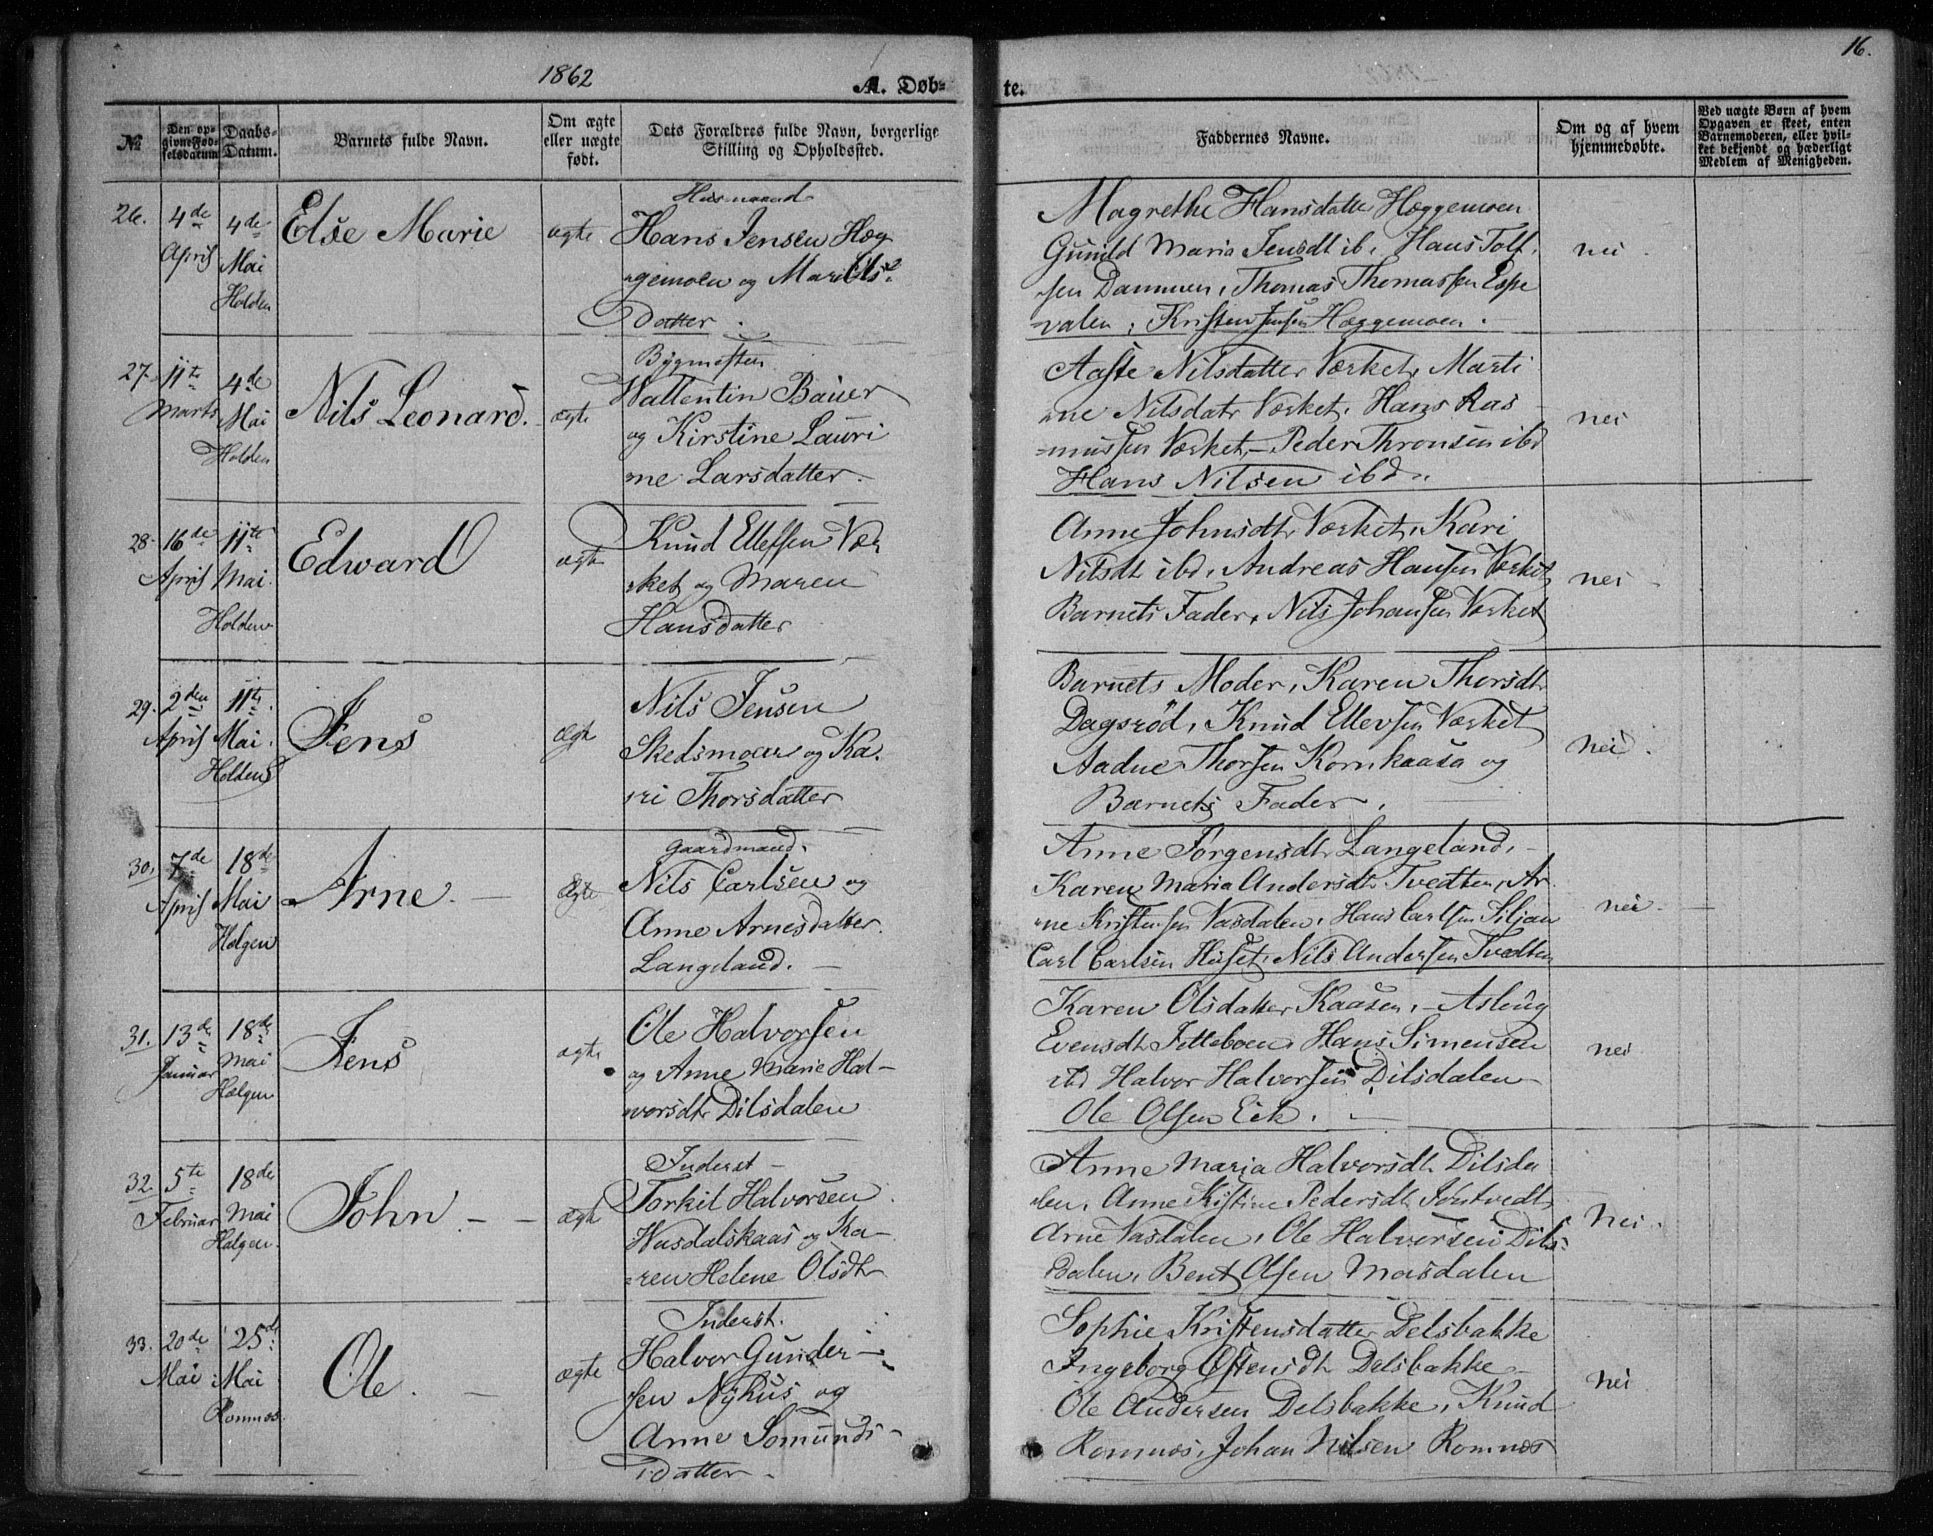 1862
A. Døbte.
16.
№
Den opgivne Fødselsdatum
Daabs-Datum.
Barnets fulde Navn.
Om ægte eller uægte født.
Dets Forældres fulde Navn, borgerlige Stilling og Opholdssted.
Faddernes Navne.
Om og af hvem hjemmedøbte.
Ved uægte Børn af hvem Opgaven er skeet, enten Barnemoderen, eller hvilket bekjendt og hæderligt Medlem af Menigheden.
26.
4de April
4de Mai Holden
Else Marie
ægte
Husmand
Hans Jensen Hæg
gemoen og Mari Ols
Datter.
Magrethe Hansdatter Hæggemoen
Gunild Maria Jensdt ib. Hans Tolf
sen Dammen, Thomas Thomassen Espe
valen, Kristen Jensen Hæggemoen.
nei
27.
11te Marts
4de Mai Holden
Nils Leonard.
ægte
Bygmester
Wallentin Bauer
og Kirstine Lauri
ne Larsdatter.
Aaste Nilsdatter Værket, Marti
ne Nilsdatr Værket, Hans Ras
mussen Værket, Peder Thronsen ibd
Hans Nilsen ibd.
nei
28.
16de April
11te Mai Holden
Edward
ægte
Knud Ellefsen Vær
ket og Maren
Hansdatter
Anne Johnsdtr Værket, Kari
Nilsdt ibd, Andreas Hansen Værket,
Barnets Fader, Nils Johansen Værket
nei
29.
2den April
11te Mai. Holden
Jens
ægte
Nils Jensen
Skedsmoen og Ka
ri Thorsdatter
Barnets Moder, Karen Thorsdt
Dagsrød, Knud Ellevsen Værket
Aadne Thorsen Kornkaasa og
Barnets Fader.
nei.
30.
7de April
18de Mai Helgen
Arne.
ægte
Gaardmand.
Nils Carlsen og
Anne Arnesdatter
Langeland.
Anne Jørgensdt. Langeland,
Karen Maria Andersdt. Tvedten, Ar
ne Kristensen Vasdalen, Hans Carlsen Siljan
Carl Carlsen Huset, Nils Andersen Tvedten
nei.
31.
13de Januar
18de Mai Helgen
Jens
ægte
Ole Halvorsen
og Anne Marie Hal-
vorsdt. Dilsdalen
Karen Olsdatter Kaasen, Aslaug
Evensdt. Jelleboen, Hans Simensen
ibd Halvor Halvorsen Dilsdalen
Ole Olsen Eik.
nei
32.
5te Februar
18de Mai Helgen.
John.
ægte
Inderst
Torkil Halvorsen
Wasdalskaas og Ka-
ren Helene Olsdtr
Anne Maria Halvorsdt. Dilsda
len, Anne Kistine Pedersdt. Jontvedt,
Arne Vasdalen, Ole Halvorsen Dils
dalen, Bent Olsen Masdalen
Nei.
33.
20de Mai
25de Mai Romnæs.
Ole.
ægte
Inderst.
Halvor Gunder-
sen Nyhus og
Anne Somunds-
datter.
Sophie Kristensdatter Delsbakke
Ingeborg Østensdt. Delsbakke
Ole Andersen Delsbakke, Knud
Romnæs, Johan Nilsen Romnæs
nei